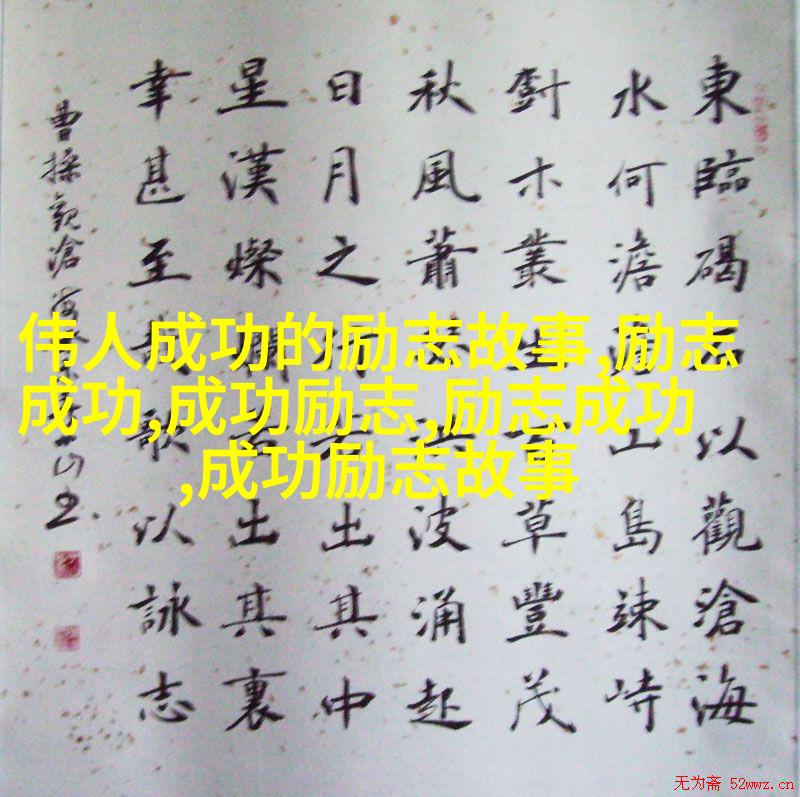 東臨碣石以觀滄海
水何澹山島竦峙
木叢生百草豐茂
秋風蕭洪波涌起
日月之行若出其中
星漢燦爛若出其裏
幸甚至哉歌以詠志
曹操觀滄海
伟人成功的励志故事,励志
成功,成功励志,励志成功
,成功励志故事
无为斋 52wwz.cn